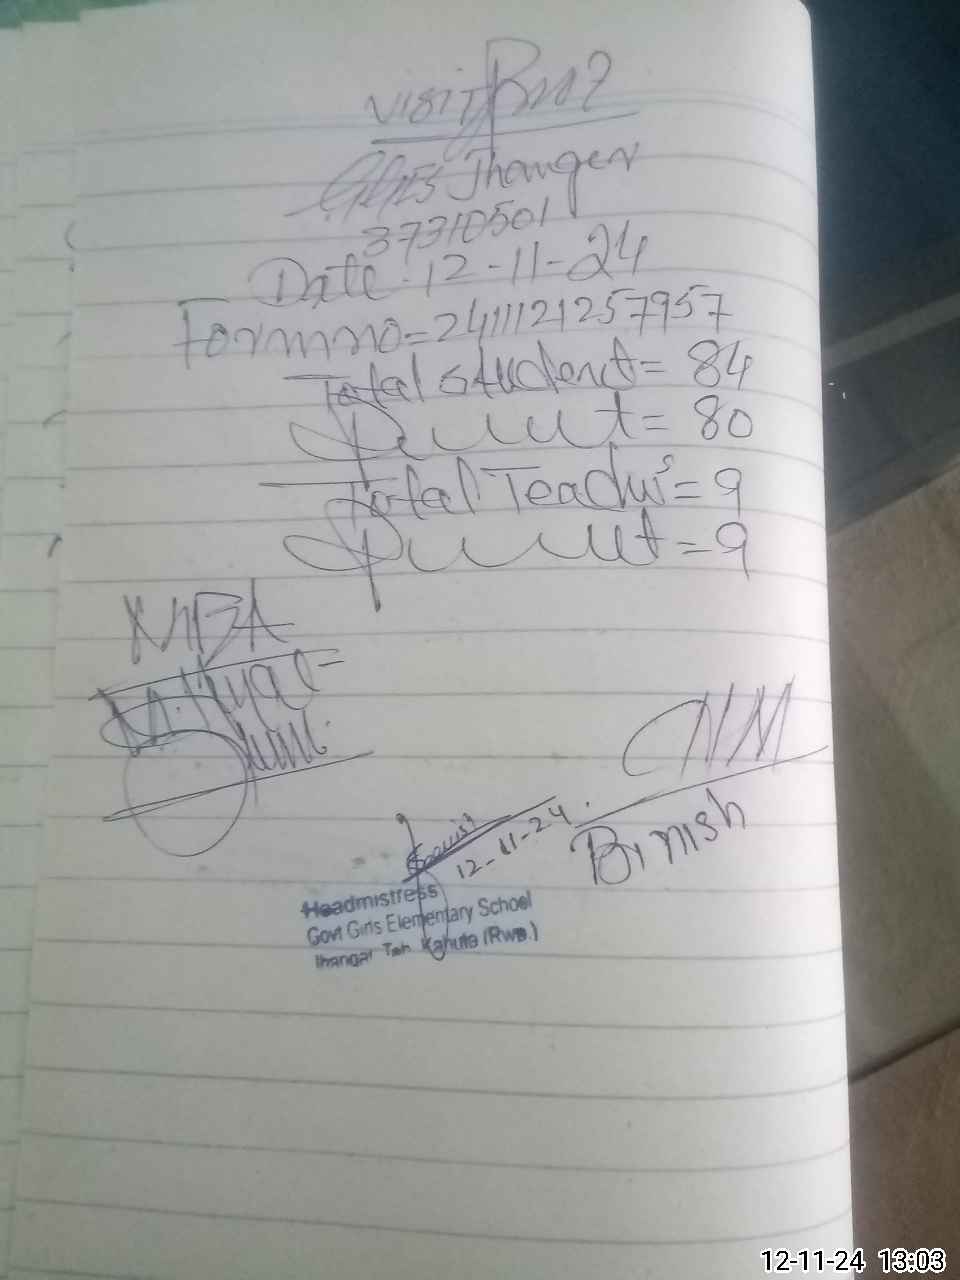 visit Proof
GGES Jhanger
37310501
Date. 12-11-24
Form no=2411121257957
Total student= 84
Present= 80
Total Teachers=9
Present=9
MEA
CNM
Binish
12-11-24
Headmistress
Govt Girls Elementary School
Jhangar Teh Kahuta (Rwp.)
12-11-24 13:03